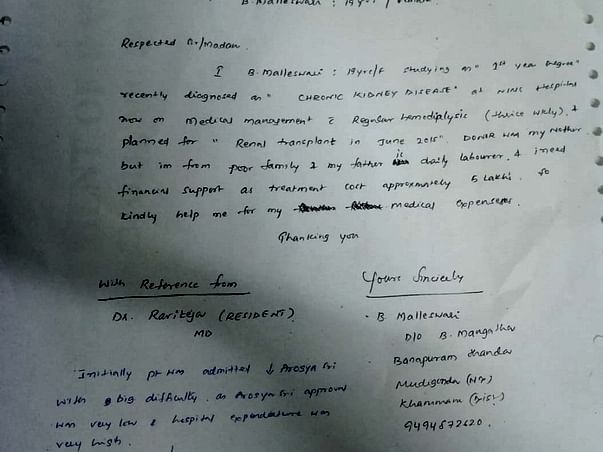 B. Malleswari : 19yrs /
Respected Sir/Madam.
I B. Malleswari : 19yr/F studying as " 1st year Degree"
recently diagnosed as " CHRONIC KIDNEY DISEASE" at NIMS Hospital
now on medical management c̄ Regular hemodialysis (thrice wkly). &
planned for " Renal transplant in June 2015". DONAR was my Mother
but im from poor family & my father is daily labourer. & i need
financial support as treatment cost approxmately 5 Lakhs. So
kindly help me for my medical expenses.
Thanking you
With Reference from
Yours Sincierly
DR. Raviteja (RESIDENT)
MD
B. Malleswari
D/o B. Mangatha
Banapuram thanda
Mudigonda
Khammam (Dist)
9494872620.
Initially pt was admitted ↓ Arogya Sri
with big difficulty. as Arogya Sri approval
was very low & hospital expenditure was
very high.